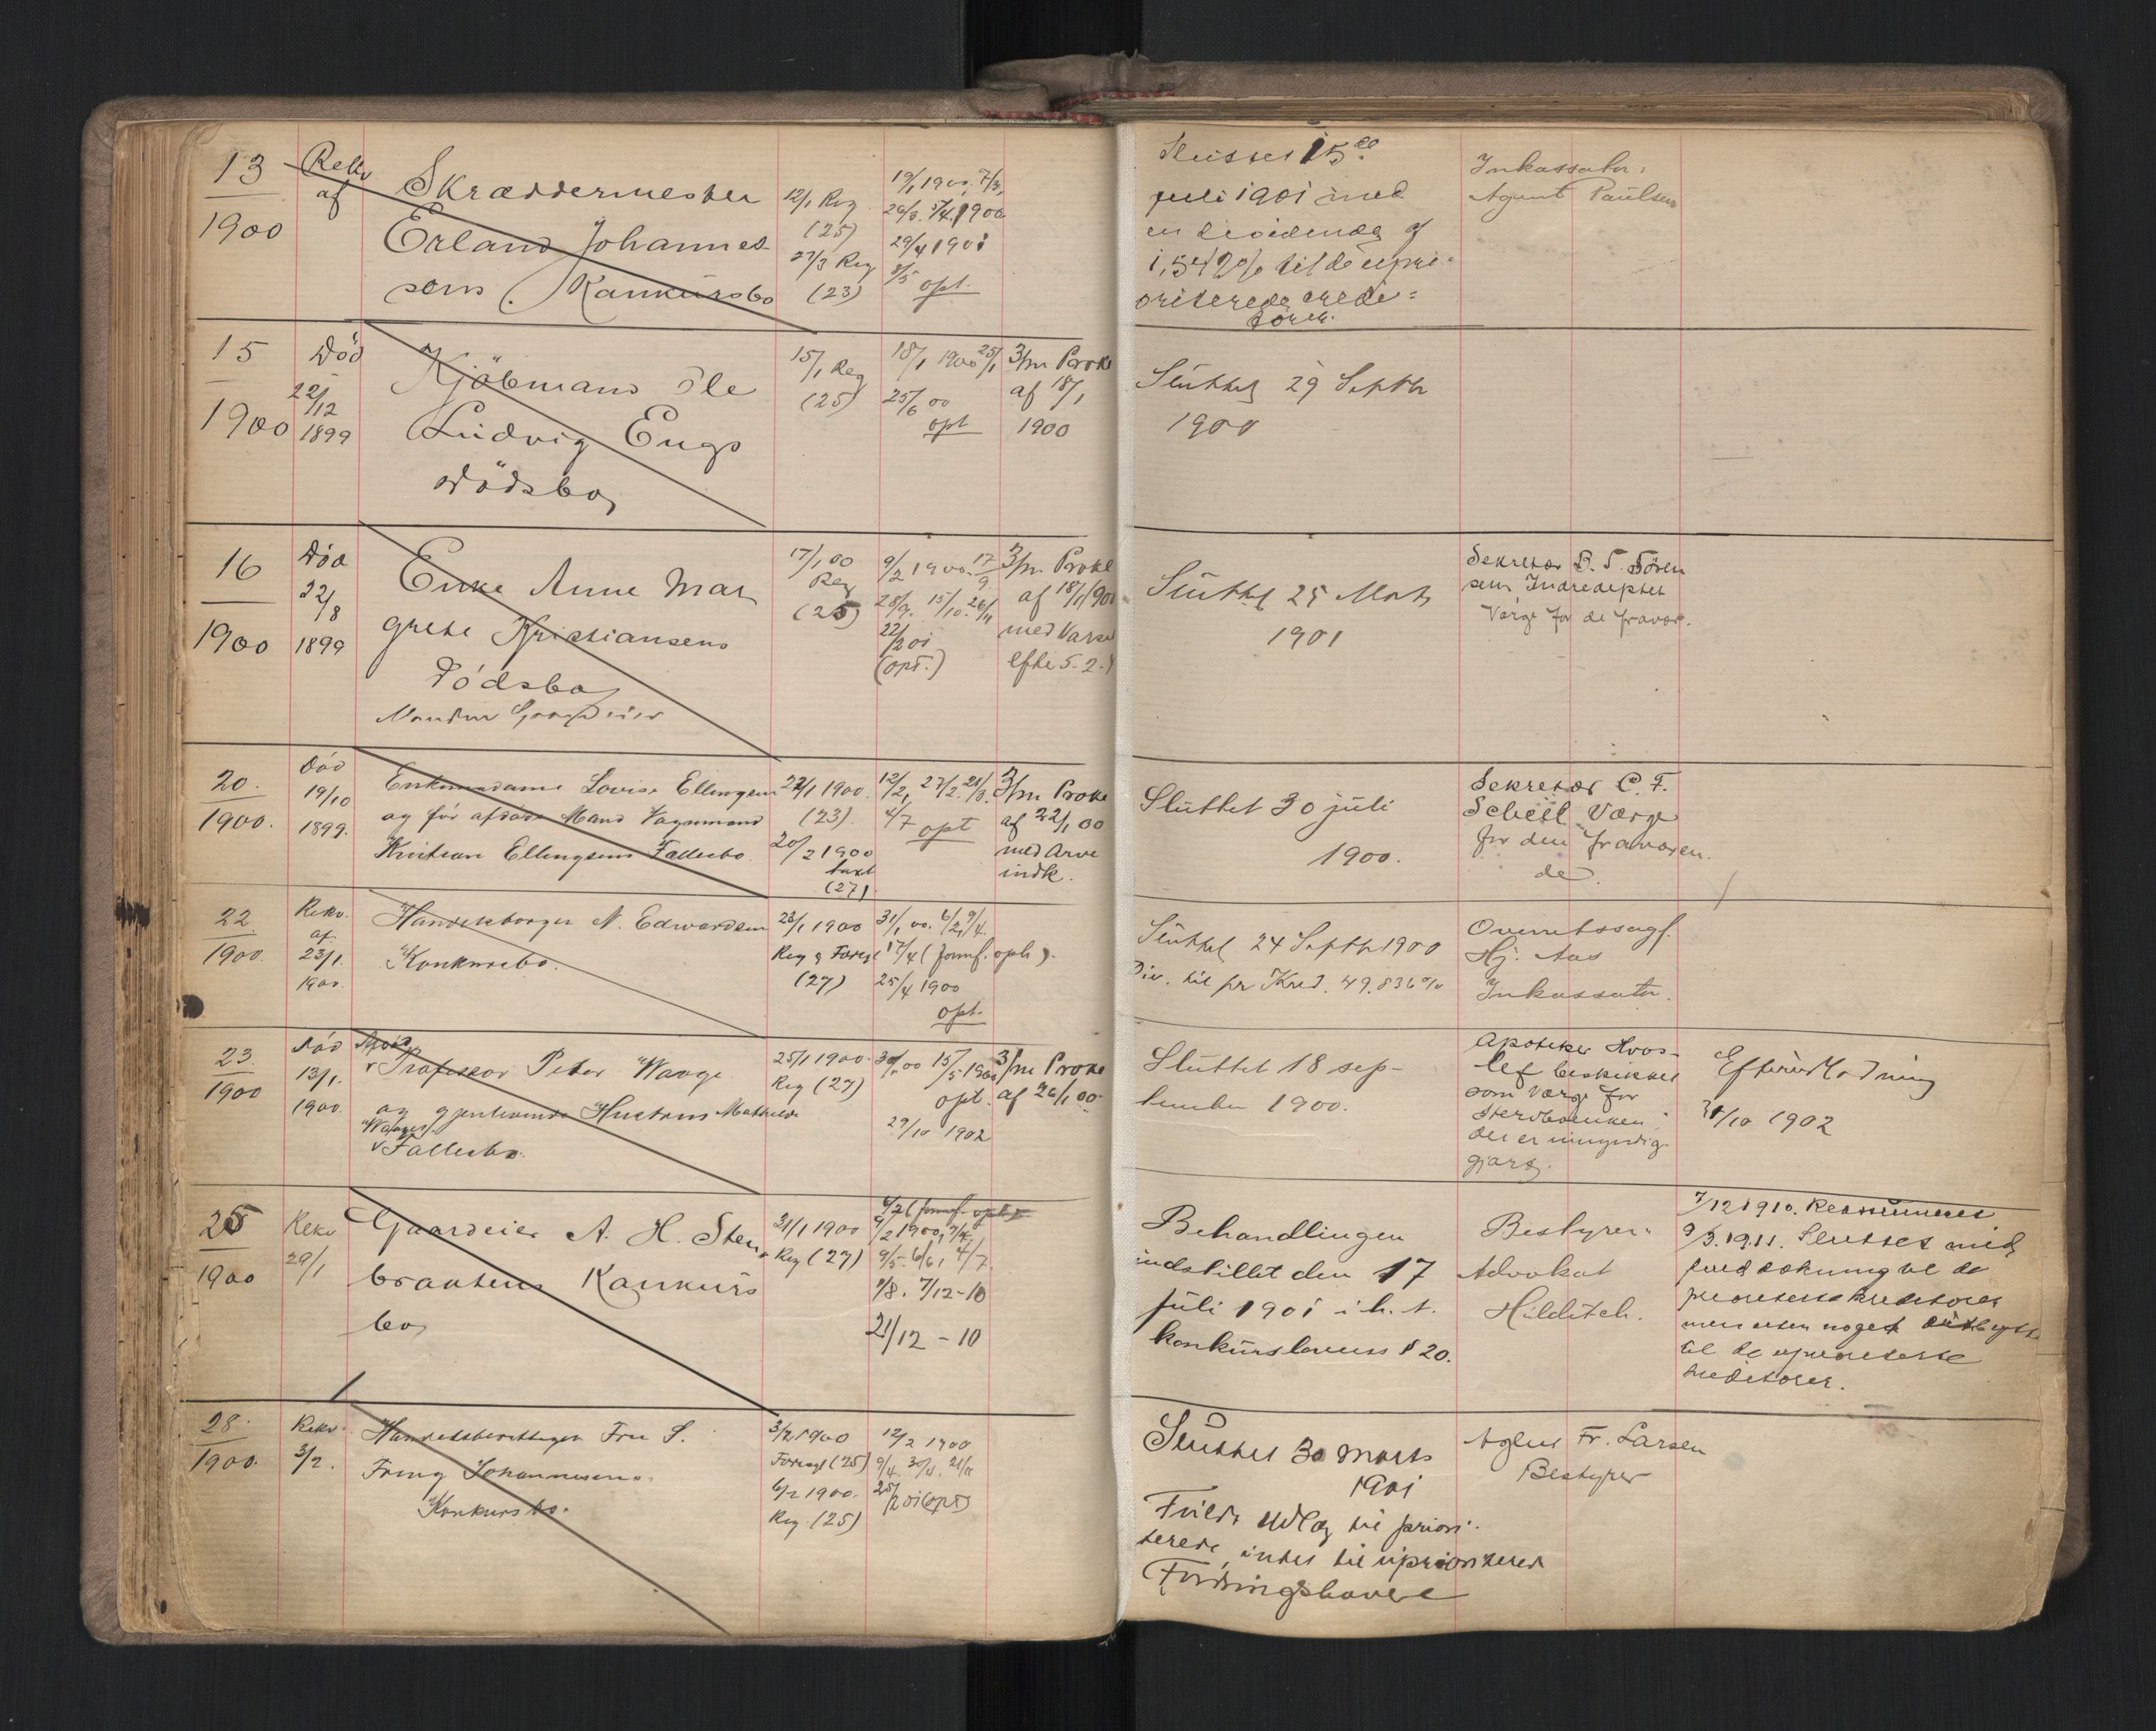 13
1900
Rekv
af
Skræddermester
Erland Johannes
sens Konkursbo
12/1 Reg
(25)
27/3 Reg
(23)
19/1 1900. 7/3,
26/3. 5/4. 1900
29/4 1901
8/5 opt.
Sluttet 15de
juli 1901 med
en dividende af
1,54 % til de upri-
oriterede credi=
torer.
Inkassator:
Agent Paulsen
15
1900
Död
22/12
1899
Kjöbmand Ole
Ludvig Engs
Dödsbo
15/1 Reg
(25)
18/1 1900 25/1
25/6 00
opt
3/m Prokl
af 18/1
1900
Sluttet 29 Septbr
1900
16
1900
Död
22/8
1899
Enke Anne Mar
grethe Kristiansens
Dödsbo
17/1 00
Reg
(25)
9/2 1900. 17/9
28/9. 15/10. 26/11
22/2 01
(opt.)
3/m Prokl
af 18/1 1900
med Varsel
efter 5-2-4
Sluttet 25 Marts
1901
Sekretær S. T. Sören
sen, Indredeptet
Værge for de fravær.
20.
1900.
Död
19/10
1899.
Enkemadame Lovise Ellingsen
og för afdöde Mand Vognmand
Kristian Ellingsens Fællesbo.
22/1 1900.
(23).
20/2 1900
taxt
(27)
12/2, 27/2. 21/3.
4/7 opt
3/m Prokl
af 22/1 00
med Arve
indk.
Sluttet 30 juli
1900.
Sekretær C. F.
Scheel Værge
for den fraværen.
de.
22
1900.
Rekv.
af
23/1.
1900.
Handelsborger N. Edwardsen
Konkursbo.
23/1 1900
Reg & Foreg
(27)
31/1 00. 6/2, 9/4.
17/4 (forml. oph).
25/4 1900
opt.
Sluttet 24 Septbr 1900
Div. til pr Kred. 49.836%
Overretssagf.
Hj. Aas
Inkassator.
23
1900
Död
13/1.
1900.
Afdöd
Professor Peter Waage
og gjenlevende Hustrus Mathilde
Waages
Fællesbo.
25/1 1900.
Reg (27)
30/1 00 15/5 1900
opt.
29/10 1902
3/m Prokl
af 26/1 00.
Sluttet 18 sep-
tember 1900.
Apotheker Hvos-
lef beskikket
som Værge for
Sterboenken
der er umyndig-
gjort.
Efterudlodning
31/10 1902
25
1900
Rekv
29/1
Gaardeier A. H. Sten
braatens Konkurs
bo
31/1 1900
Reg (27)
6/2 (forml. oph)
9/2 1900, 7/4,
9/5 - 6/6, 4/7
8/8. 7/12-10
21/12 - 10
Behandlingen
indstillet den 17
juli 1901 i h. t.
konkurslovens § 20.
Bestyrer:
Advokat
Hilditch.
7/12 1910. Ressumeret
9/3. 1911. Sluttet med
fuld dækning til de
prioriterte kreditorer
men uten noget utbytte
til de uprioriterte
kreditorer.
28.
1900.
Rekv.
3/2.
Handelsberettiget Fru S.
Johannesens
Konkursbo.
3/2 1900
Foreagt (25)
6/2 1900.
Reg. (25)
12/2 1900
9/4. 30/4. 21/11
25/2 01 (opt)
Sluttet 30 marts
1901
Fuldt udlæg til priori-
terede, intet til uprioriterede
Fordringshavere
Agent Fr. Larsen
Bestyrer